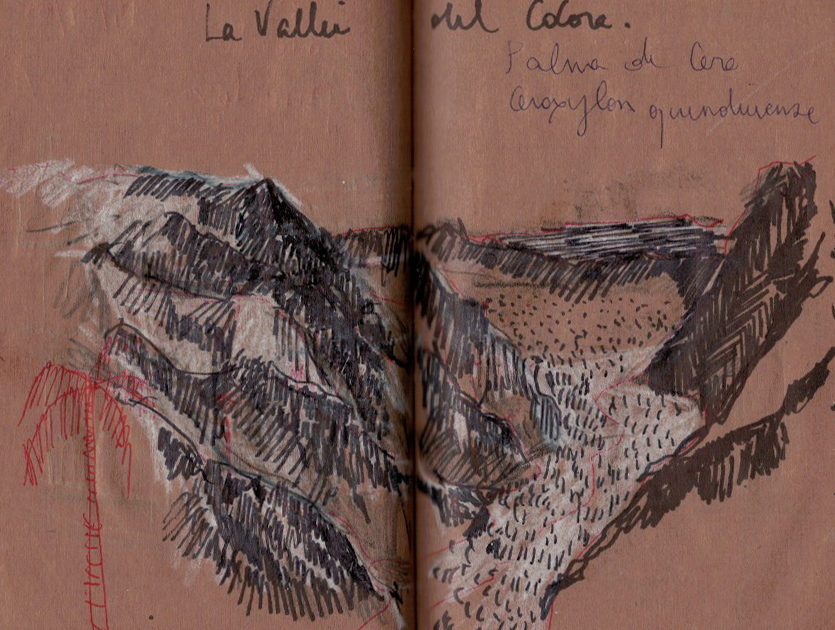 La Valleé del Colora.
Palma de Cera
Ceroxylon quindiuense